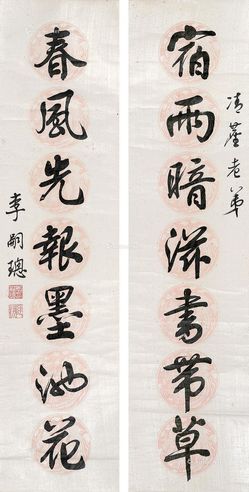 清廑老弟
宿雨暗滋書带草
春風先報墨池花
李嗣璁